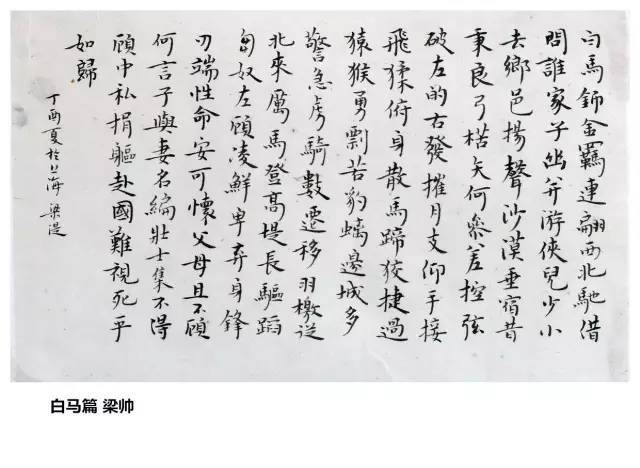 白馬飾金羈連翩西北馳借
問誰家子幽并游俠兒少小
去鄉邑揚聲沙漠垂宿昔
秉良弓楛矢何參差控弦
破左的右發摧月支仰手接
飛猱俯身散馬蹄狡捷過
猿猴勇剽若豹螭邊城多
警急虜騎數遷移羽檄從
北來厲馬登高堤長驅蹈
匈奴左顧凌鮮卑弃身鋒
刃端性命安可懷父母且不顧
何言子與妻名編壯士集不得
顧中私捐軀赴國難視死乎
如歸
丁酉夏於上海 梁
白马篇 梁帅